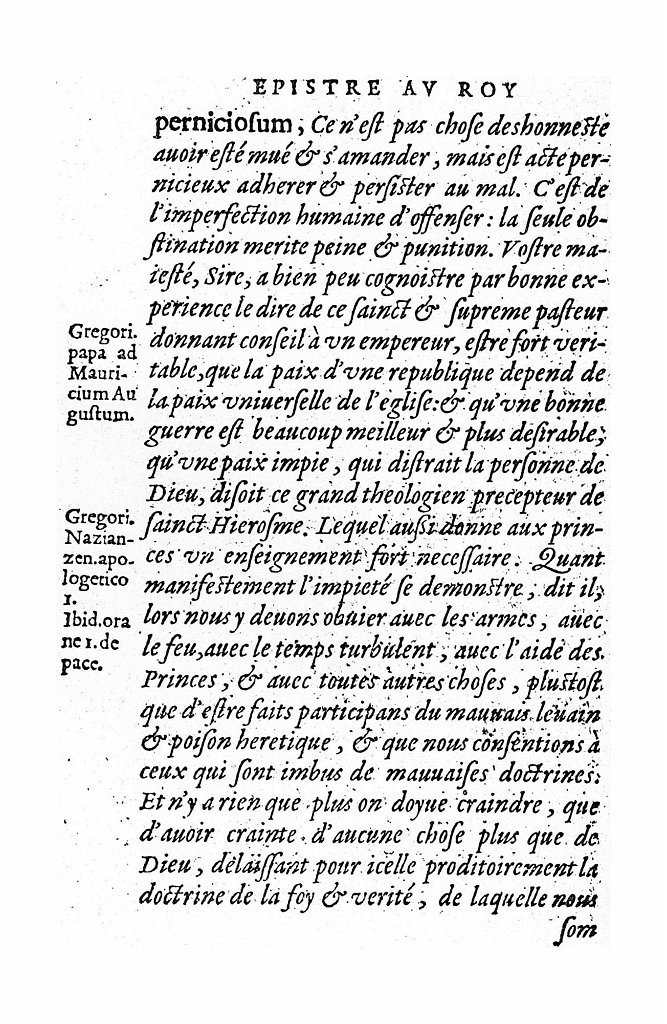 EPISTRE AV ROY
perniciosum, Ce n'eſt pas choſe deshonneſte
auoir eſté mué & s'amander, mais eſt acte per-
nicieux adherer & perſiſter au mal. C'eſt de
l'imperfection humaine d'offenſer: la ſeule ob-
ſtination merite peine & punition. Voſtre ma-
ieſté, Sire, a bien peu cognoiſtre par bonne ex-
perience le dire de ce ſainct & ſupreme paſteur
donnant conſeil à vn empereur, eſtre fort veri-
table, que la paix d'vne republique depend de
la paix vniuerſelle de l'egliſe: & qu'vne bonne
guerre eſt beaucoup meilleur & plus deſirable,
qu'vne paix impie, qui diſtrait la perſonne de
Dieu, diſoit ce grand theologien precepteur de
ſainct Hieroſme. Lequel auſsi donne aux prin-
ces vn enſeignement fort neceſſaire. Quant
manifeſtement l'impieté ſe demonſtre, dit il,
lors nous y deuons obuier auec les armes, auec
le feu, auec le temps turbulent, auec l'aide des
Princes, & auec toutes autres choſes, pluſtoſt
que d'eſtre faits participans du mauuais leuain
& poiſon heretique, & que nous conſentions à
ceux qui ſont imbus de mauuaiſes doctrines.
Et n'y a rien que plus on doyue craindre, que
d'auoir crainte d'aucune choſe plus que de
Dieu, delaiſſant pour icelle proditoirement la
doctrine de la foy & verité, de laquelle nous
ſom
Gregori.
papa ad
Mauri-
cium Au
guſtum.
Gregori.
Nazian-
zen. apo-
logetico
1.
Ibid. ora
ne 1. de
pace.